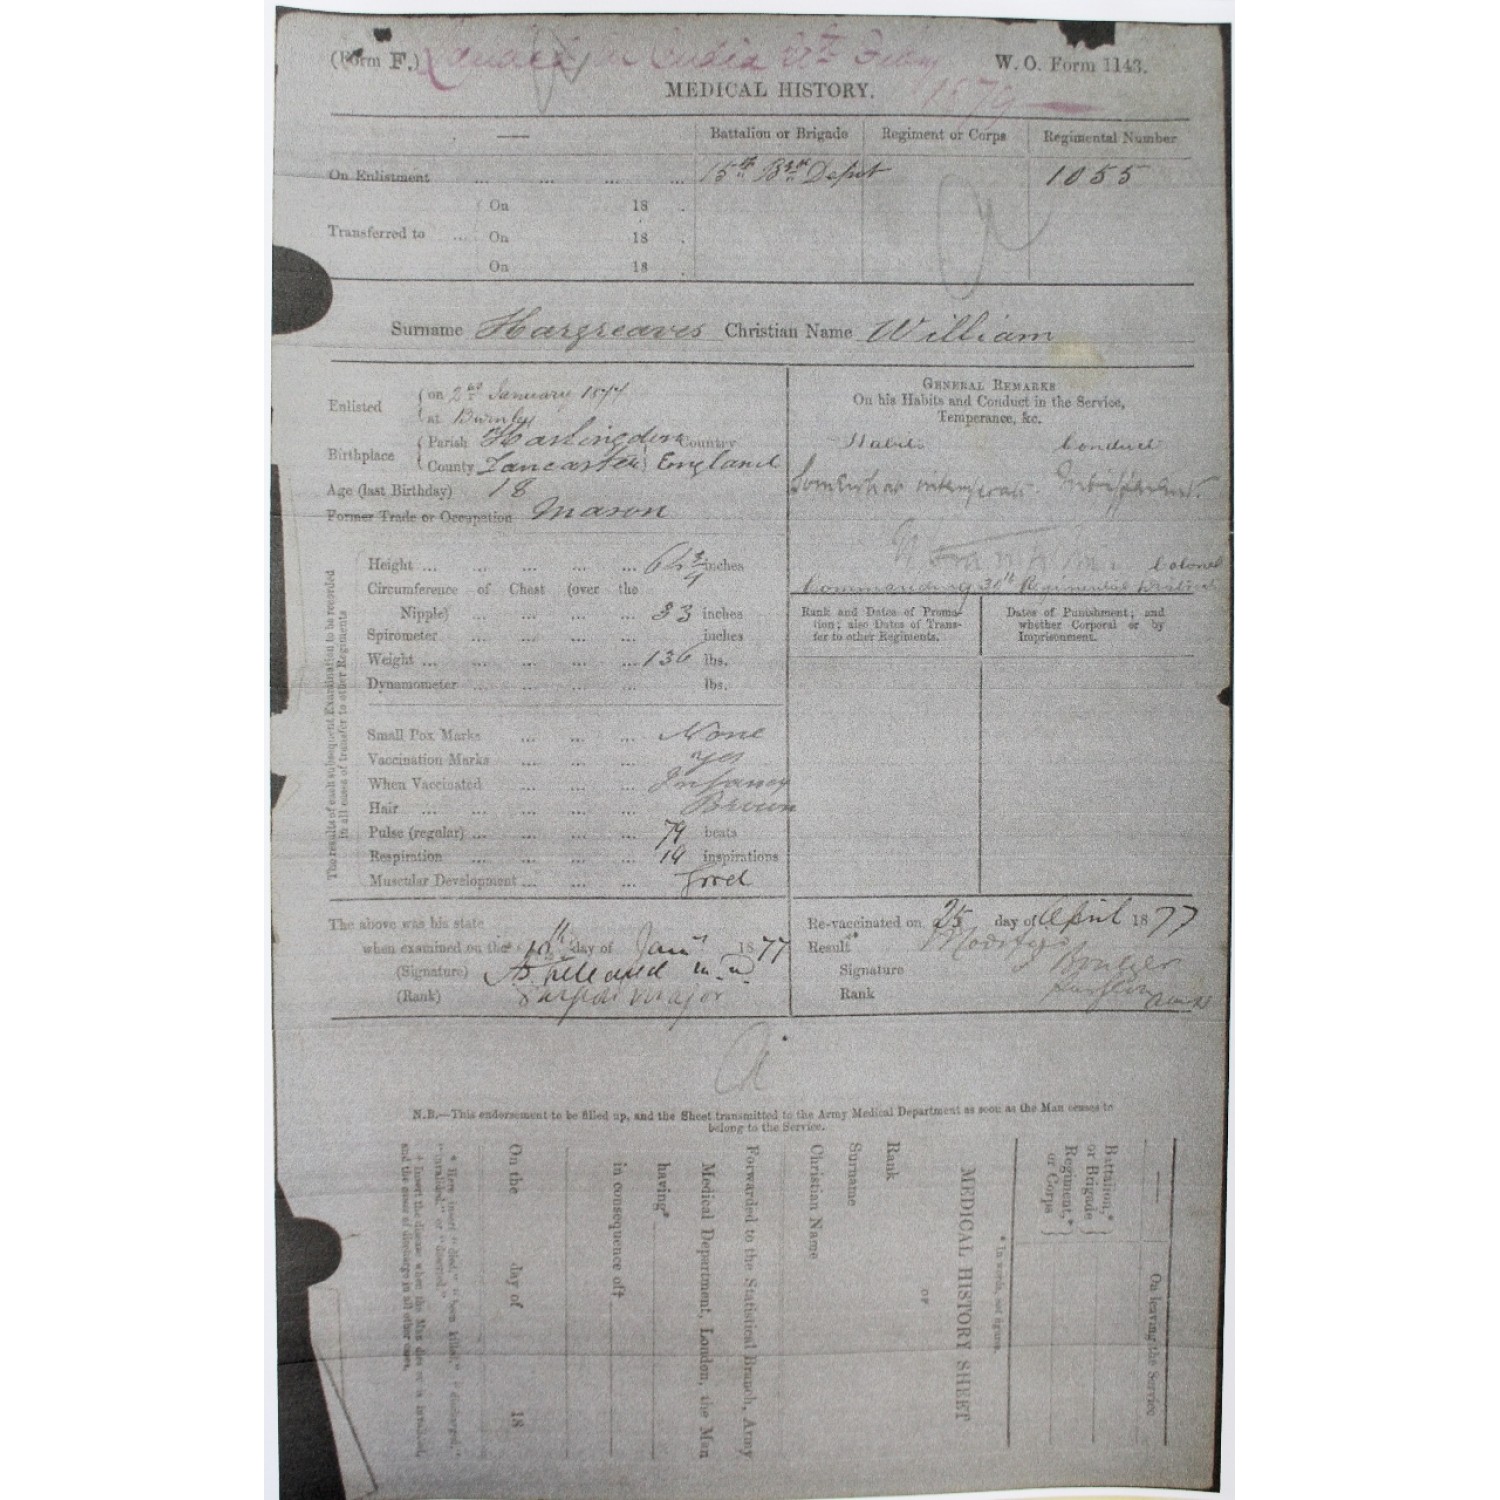 (Form F.) Landed in India
W. O. Form 1143.
1879
MEDICAL HISTORY.
Battalion or Brigade Regiment or Corps Regimental Number
On Enlistment ... ... ... ... 15th Bde Depot 1055
On 18 .
Transferred to ... On 18 .
On 18 .
Surname Hargreaves Christian Name William
Enlisted { on 2nd January 1877
at Burnley
Birthplace { Parish Haslingden Country
County Lancaster England
Age (last Birthday) 18
Former Trade or Occupation Mason
GENERAL REMARKS
On his Habits and Conduct in the Service,
Temperance, &c.
Habits Conduct
Somewhat intemperate Indifferent.
Colonel
Commanding 30th Regimental District
The results of each subsequent Examination to be recorded
in all cases of transfer to other Regiments
Height ... ... ... ... ... 64 3/4 inches
Circumference of Chest (over the
Nipple) ... ... ... ... 33 inches
Spirometer ... ... ... ... inches
Weight ... ... ... ... ... 136 lbs.
Dynamometer ... ... ... ... lbs.
Small Pox Marks ... ... ... None
Vaccination Marks ... ... ... Yes
When Vaccinated ... ... ... Infancy
Hair ... ... ... ... ... Brown
Pulse (regular) ... ... ... ... 79 beats
Respiration ... ... ... ... 19 inspirations
Muscular Development ... ... ... Good
Rank and Dates of Promo-
tion; also Dates of Trans-
fer to other Regiments.
Dates of Punishment; and
whether Corporal or by
Imprisonment.
The above was his state
when examined on the 10th day of Jany 1877
(Signature) M.D.
(Rank) Surgeon Major
Re-vaccinated on 25 day of April 1877
Result* Modified
Signature
Rank Surgeon
N.B.—This endorsement to be filled up, and the Sheet transmitted to the Army Medical Department as soon as the Man ceases to
belong to the Service.
On leaving the Service
Battalion,*
or Brigade }
Regiment,*
or Corps }
* In words, not figures.
MEDICAL HISTORY SHEET
OF
Rank
Surname
Christian Name
Forwarded to the Statistical Branch, Army
Medical Department, London, the Man
having*
in consequence of†
On the day of 18
* Here insert "died," "been killed," "discharged,"
"invalided," or "deserted."
† Insert the disease when the Man dies or is invalided,
and the cause of discharge in all other cases.